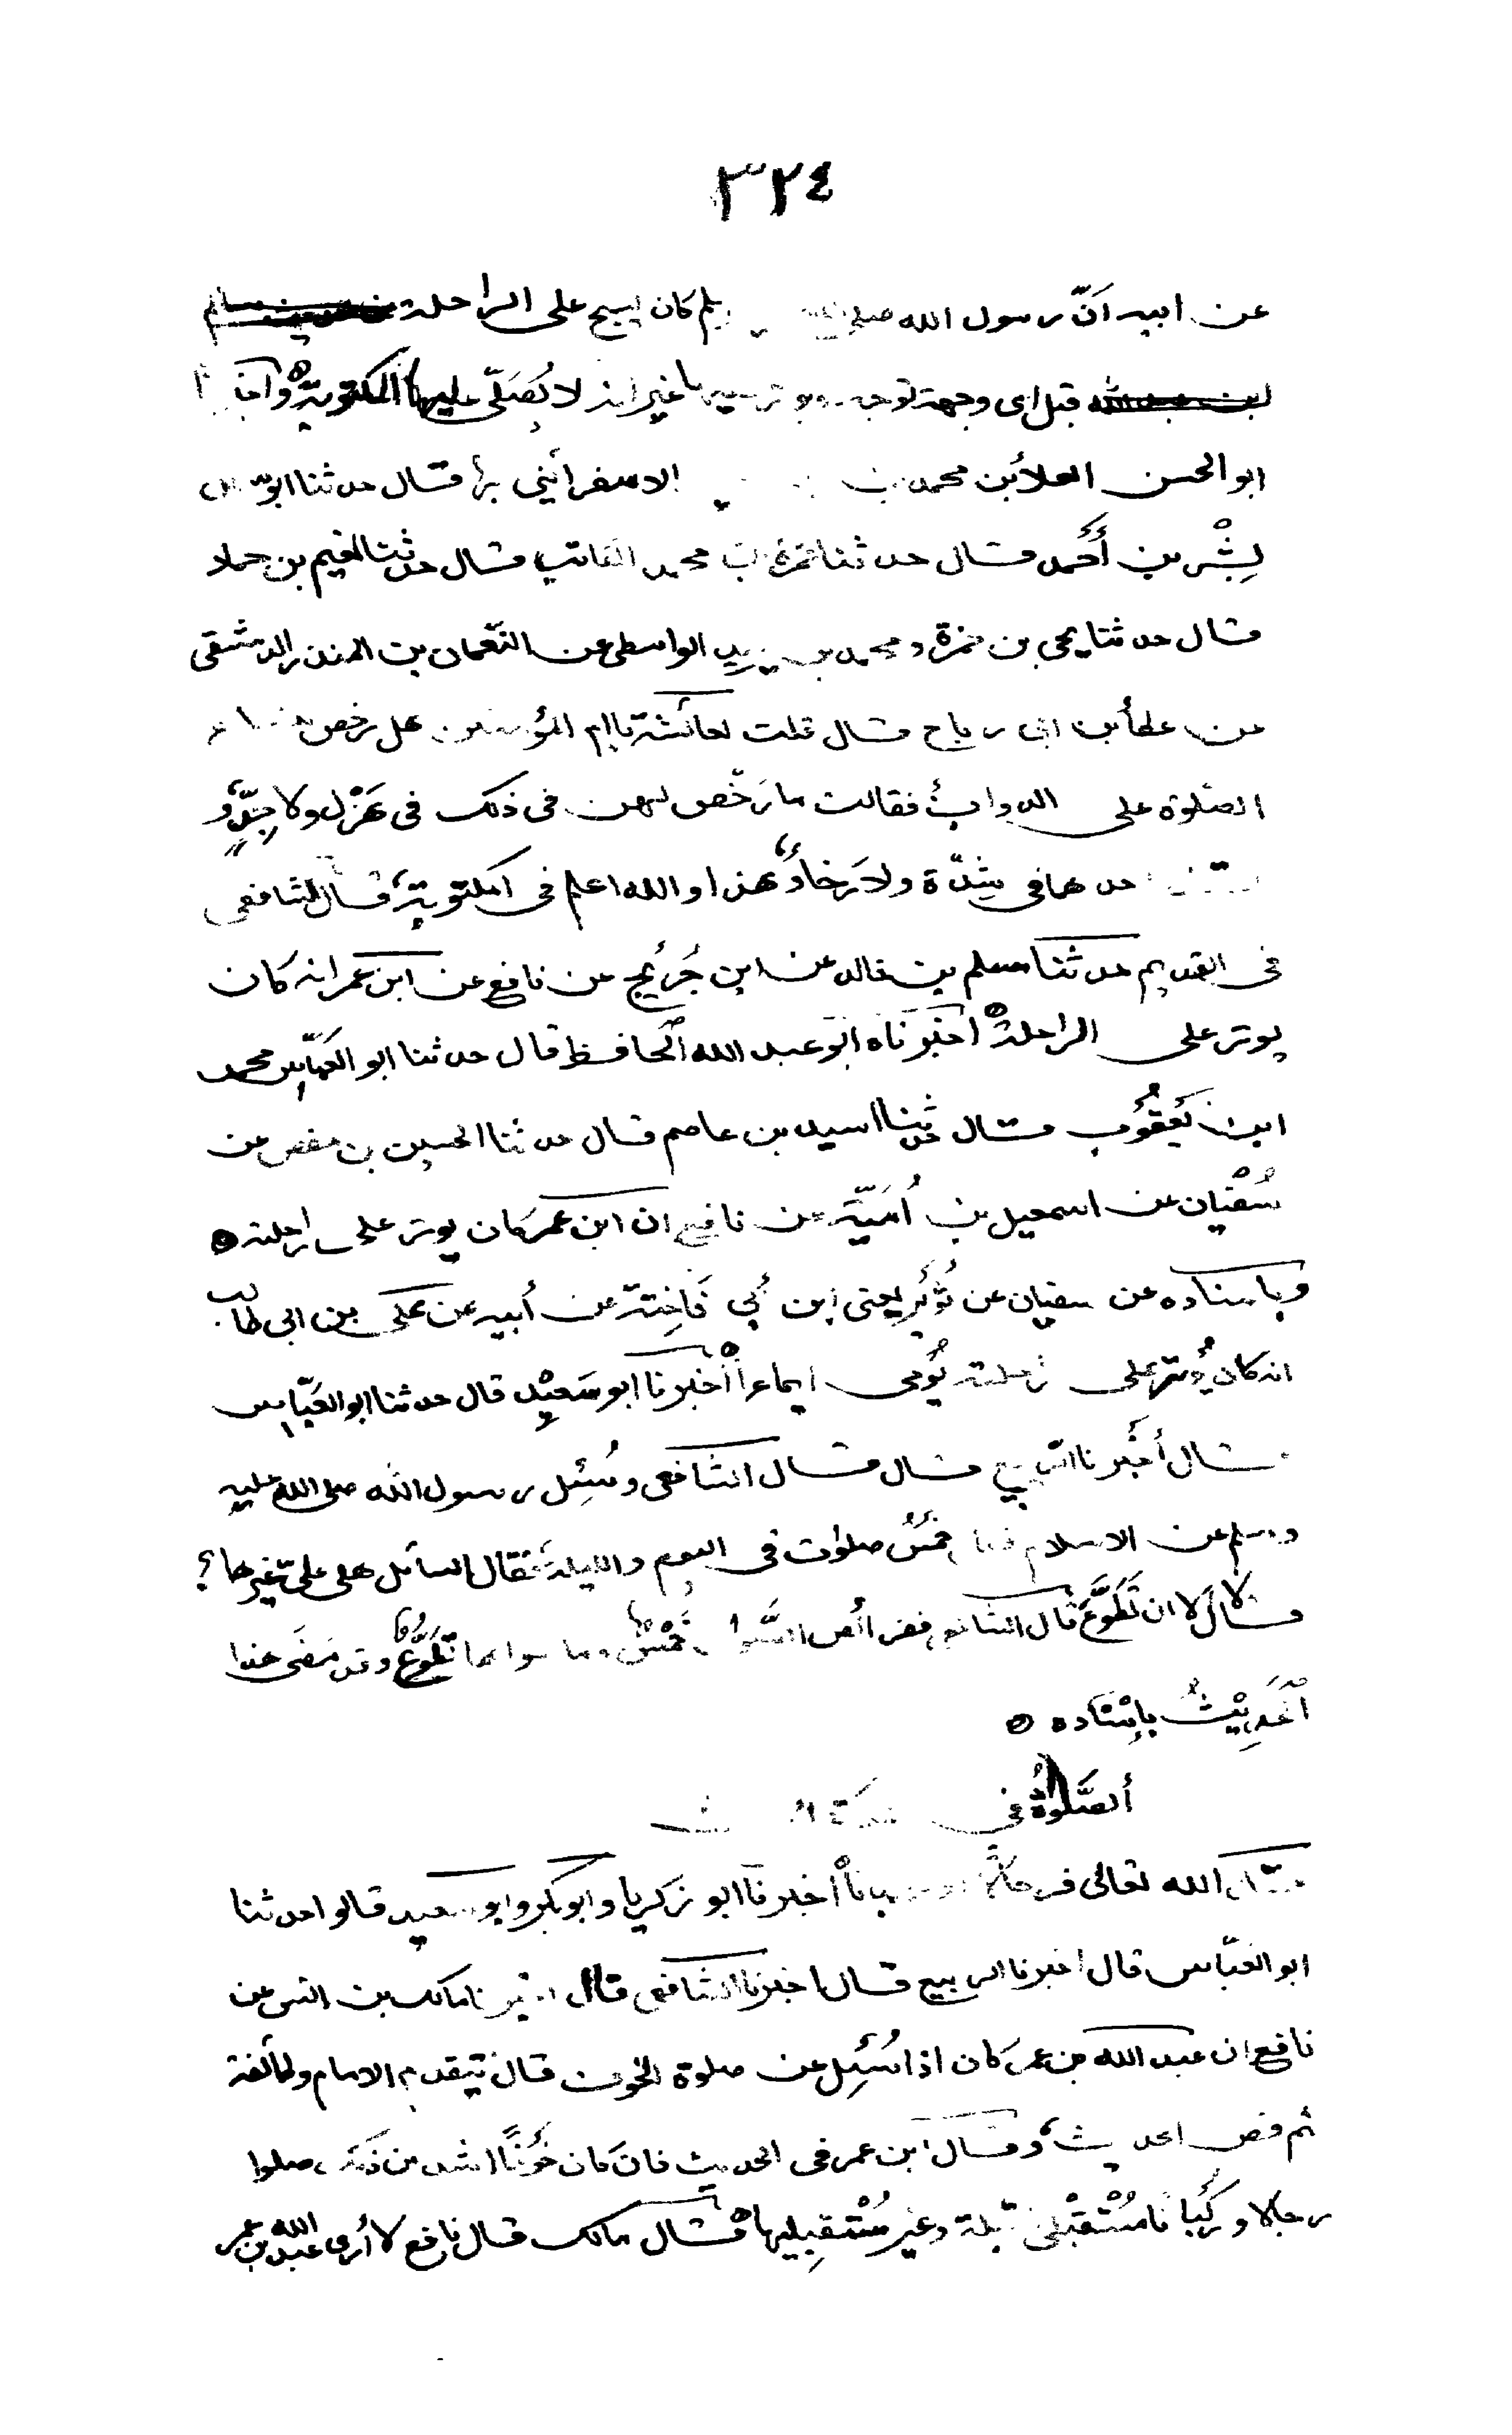 ٣٢٤
عن ابيه انّ رسول الله صلى وسلم كان يسبح على الراحلة
قبل اى وجهة توجه ويوتر عليها غير انه لا يُصَلّى عليها المكتوبة واخبرنا
ابو الحسن العلاء بن محمد بن الاسفرائيني بها قال حدثنا ابو سهل
بِشْر بن أحمد قال حدثنا حمزة بن محمد الكاتب قال حدثنا نعيم بن حماد
قال حدثنا يحيى بن حمزة ومحمد بن يزيد الواسطى عن النّعمان بن المنذر الدمشقى
عن عطأ بن ابى رباح قال قلت لعائشة يا ام المؤمنين هل رخص
الصّلوة على الدواب فقالت ما رَخّص لهن فى ذلك فى هَزْل ولا جِدٍّ و
احدهما فى شِدّة ولا رَخاءٍ وهذا والله اعلم فى المكتوبة، قال الشافعى
فى القديم حدثنا مسلم بن خالد عن ابن جُرَيج عن نافع عن ابن عمر انه كان
يوتر على الراحلة اخبرناه ابو عبد الله الحافظ قال حدثنا ابو العبّاس محمد
ابن يَعقُوب قال حدثنا اسيد بن عاصم قال حدثنا الحسين بن حفص عن
سُفْيان عن اسمعيل بن أُمَيَّة عن نافع ان ابن عمر كان يوتر على راحلته
وباسناده عن سفيان عن ثُوَير يعنى ابن أبي فَاخِتة عن أبيه عن على بن ابى طالب
انه كان يُوتر على راحلته يُومى ايماءاً أخبرنا ابو سَعِيْد قال حدثنا ابو العَبّاس
قال أخبرنا الربيع قال قال الشافعى وسُئِل رسول الله صلى الله عليه
وسلم عن الاسلام فقال خمسُ صلوٰت فى اليوم والليلة فقال السائل هل على غيرها؟
قال لا الا ان تَطَّوَّعَ قال الشافعى ففرائض الصَّلوات خَمْسٌ وما سواهما تَطَوُّعٌ وقد مَضَى هذا
اَلْحَدِيْثُ بإسْنَاده
ألصَّلوٰةُ فى شدة الخوف
قال الله تعالى فرجالاً او ركباناً أخبرنا ابو زكريا وابو بكر وابو سعيد قالوا حدثنا
ابو العبّاس قال اخبرنا الربيع قال اخبرنا الشافعى قال اخبرنا مالك بن انس عن
نافع ان عبد الله بن عمر كان اذا سُئِل عن صلوة الخوف قال يتقدم الامام وطائفة
ثم قص الحديث، وقال ابن عمر فى الحديث فان كان خَوْفًا اشد من ذلك صلوا
رجالا ورُكْبانا مُسْتَقْبِلى القبلة وغَيْر مُسْتَقبِليها قال مالك قال نافع لا أرى عبد الله بن عمر